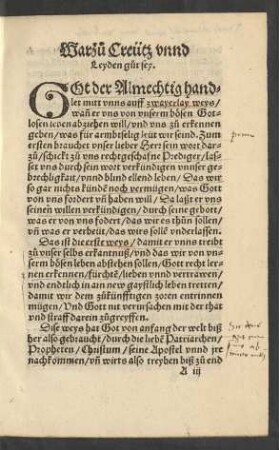 Warzů Creütz vnnd
Leyden gůt sey.
GOt der Almechtig hand-
let mitt vnns auff zwayerlay weys /
wañ er vns von vnserm bösen Got-
losen leben abziehen will / vnd vns zů erkennen
geben / was für armbtselig leüt wir seind. Zum
ersten brauchet vnser lieber Herr sein wort dar-
zů / schickt zů vns rechtgeschafne Prediger / las-
set vns durch sein wort verkündigen vnnser ge-
brechligkait / vnnd blind ellend leben / Das wir
so gar nichts kündē noch vermügen / was Gott
von vns fordert vñ haben will / Da laßt er vns
seinen willen verkündigen / durch seine gebott /
was er von vns fodert / das wir es thůn söllen /
vñ was er verbeüt / das wirs sollē vnderlassen.
Das ist die erste weys / damit er vnns treibt
zů vnser selbs erkantnuß / vnd das wir von vn-
serm bösen leben abstehen söllen / Gott recht ler-
nen erkennen / fürchtē / lieben vnnd vertrawen /
vnd endtlich in ain new gaystlich leben tretten /
damit wir dem zůkünfftigen zoren entrinnen
mügen / Vnd Gott nit verursachen mit der that
vnd straff darein zůgreyffen.
Dise weys hat Got von anfang der welt biß
her also gebraucht / durch die liebē Patriarchen /
Propheten / Christum / seine Apostel vnnd jre
nachkommen / vñ wirts also treyben biß zů end
A iij